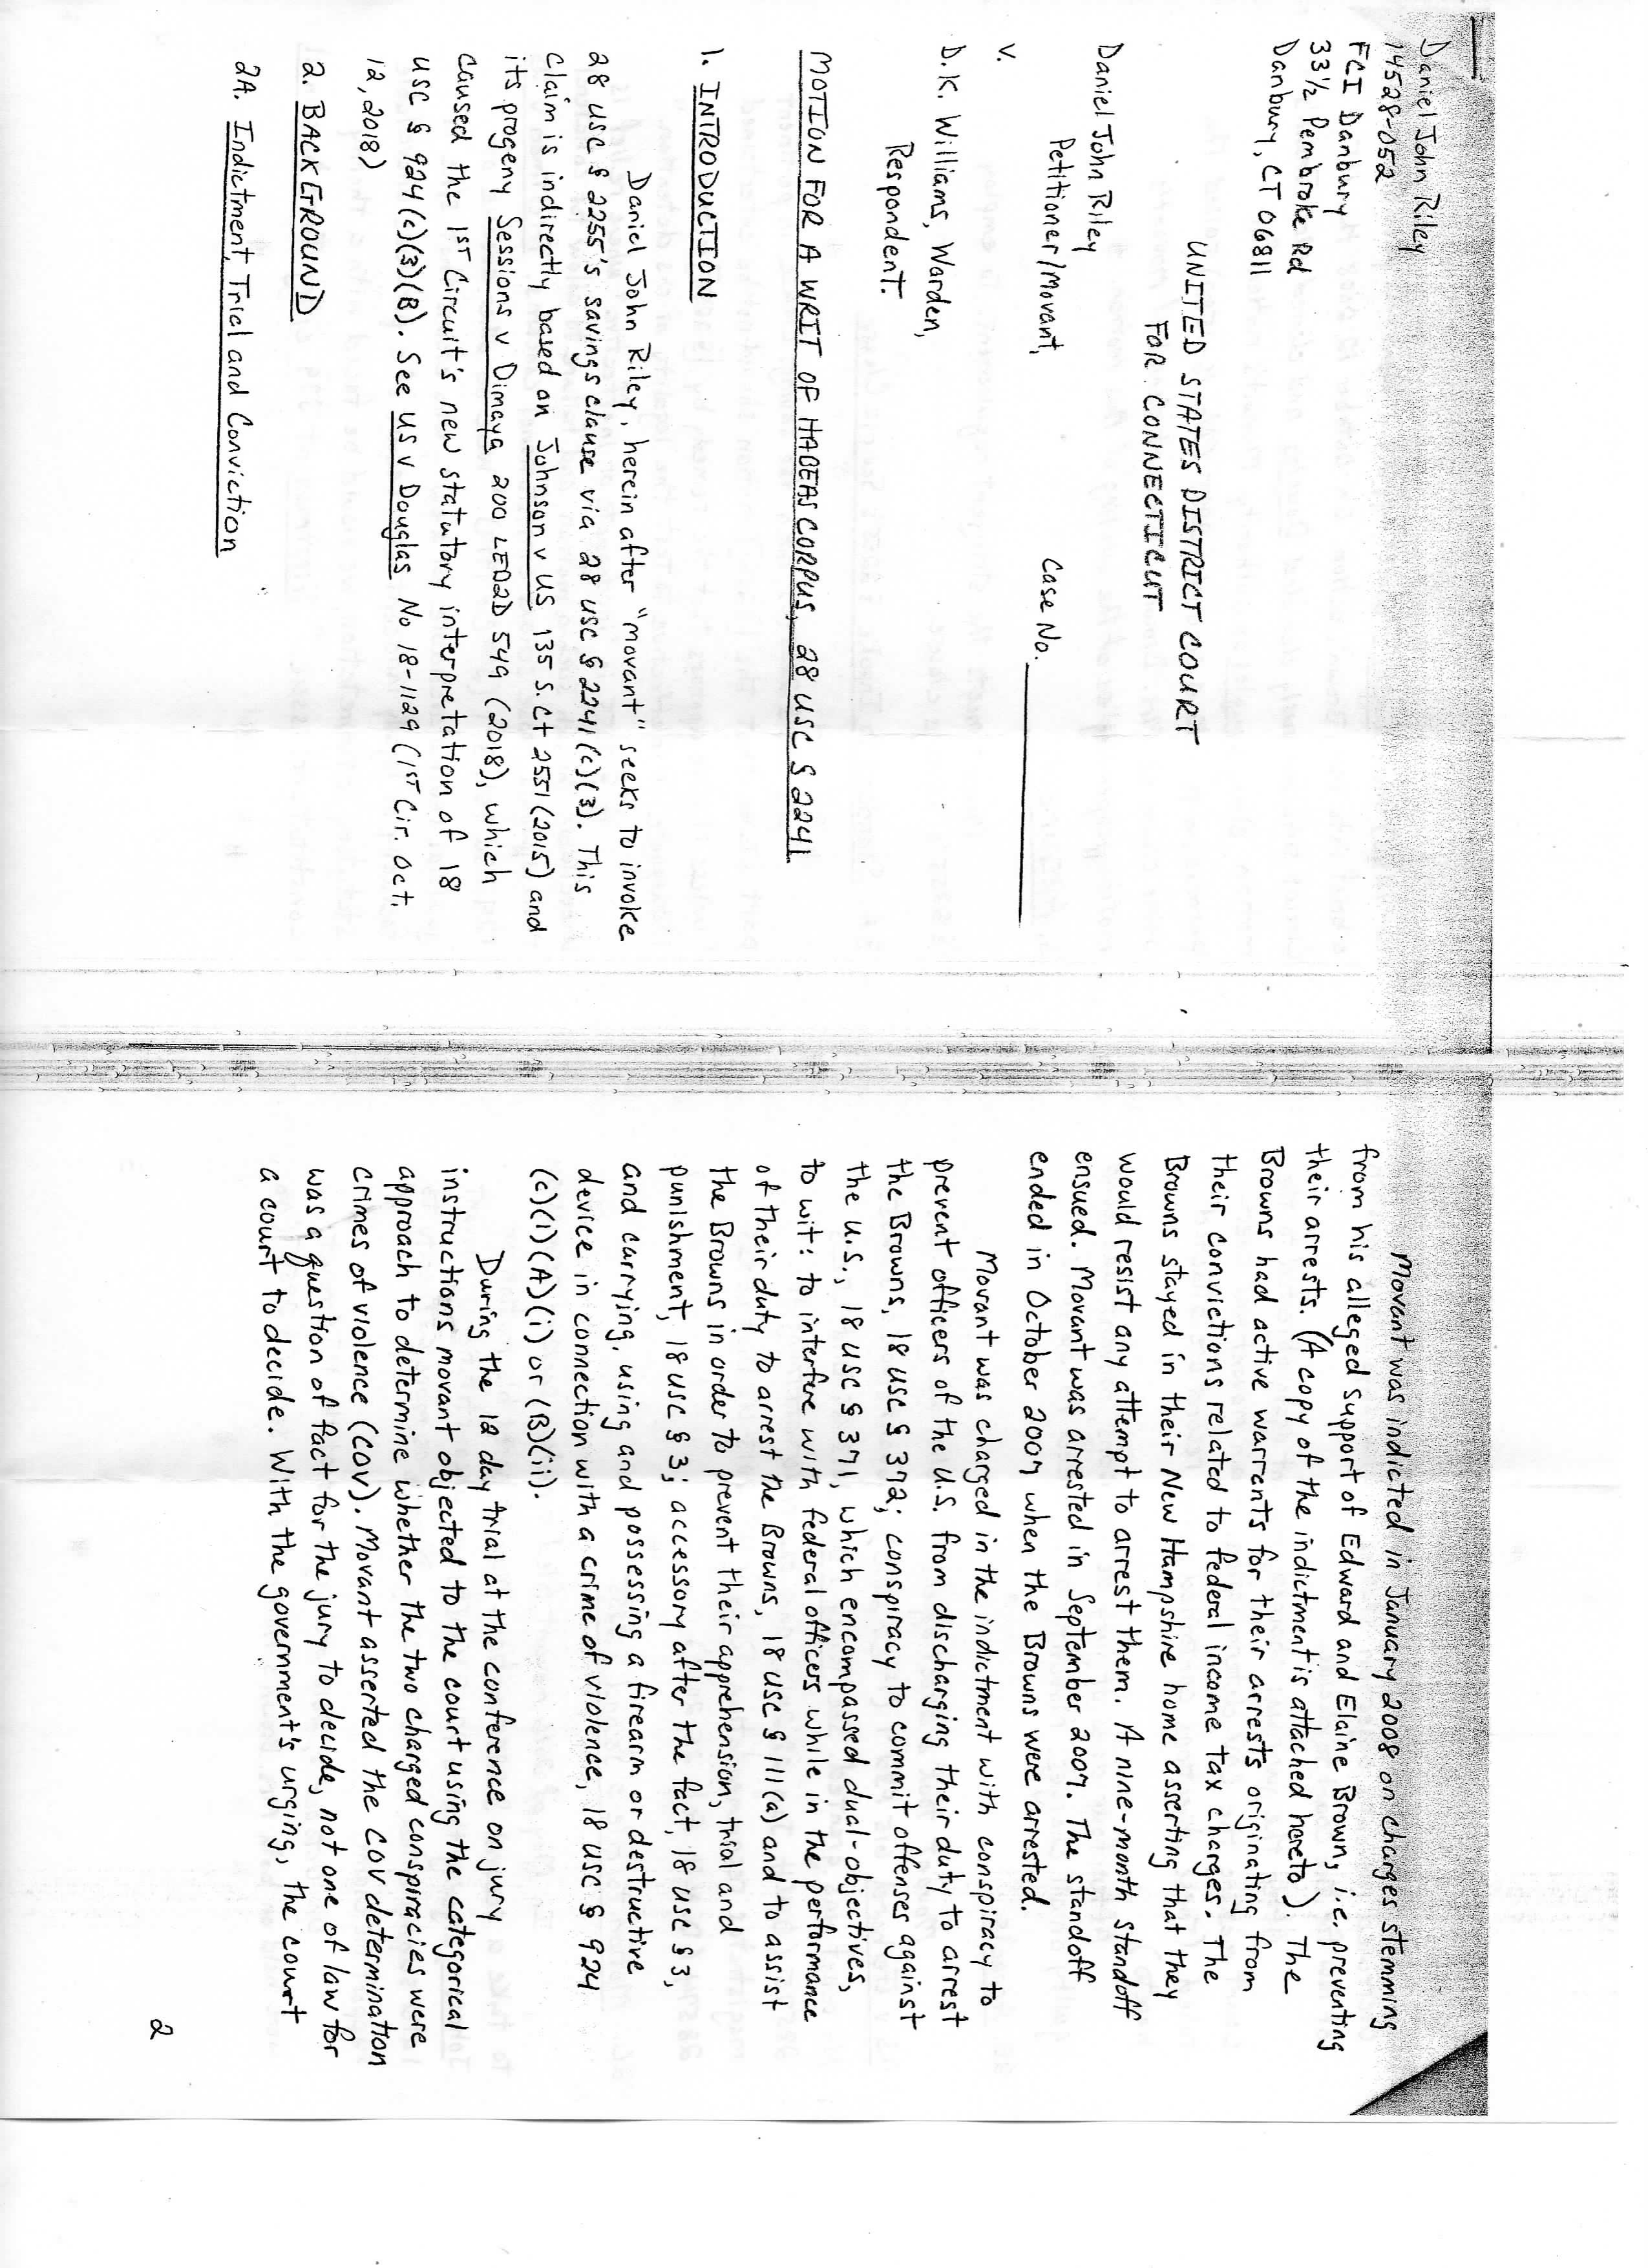 Daniel John Riley
14528-052
FCI Danbury
33½ Pembroke Rd
Danbury, CT 06811
UNITED STATES DISTRICT COURT
FOR CONNECTICUT
Daniel John Riley
Petitioner/Movant,
Case No.
V.
D.K. Williams, Warden,
Respondent.
MOTION FOR A WRIT OF HABEAS CORPUS, 28 USC § 2241
1. INTRODUCTION
Daniel John Riley, herein after "movant" seeks to invoke
28 USC § 2255's savings clause via 28 USC § 2241(c)(3). This
claim is indirectly based on Johnson v US 135 S.Ct 2551 (2015) and
its progeny Sessions v Dimaya 200 LED2D 549 (2018), which
caused the 1ST Circuit's new statutory interpretation of 18
USC § 924(c)(3)(B). See US v Douglas No 18-1129 (1ST Cir. Oct.
12, 2018)
2. BACKGROUND
2A. Indictment, Trial and Conviction
Movant was indicted in January 2008 on charges stemming
from his alleged support of Edward and Elaine Brown, i.e. preventing
their arrests. (A copy of the indictment is attached hereto). The
Browns had active warrants for their arrests originating from
their convictions related to federal income tax charges. The
Browns stayed in their New Hampshire home asserting that they
would resist any attempt to arrest them. A nine-month standoff
ensued. Movant was arrested in September 2007. The standoff
ended in October 2007 when the Browns were arrested.
Movant was charged in the indictment with conspiracy to
prevent officers of the U.S. from discharging their duty to arrest
the Browns, 18 USC § 372; conspiracy to commit offenses against
the U.S., 18 USC § 371, which encompassed dual-objectives,
to wit: to interfere with federal officers while in the performance
of their duty to arrest the Browns, 18 USC § 111(a) and to assist
the Browns in order to prevent their apprehension, trial and
punishment, 18 USC § 3; accessory after the fact, 18 USC § 3,
and carrying, using and possessing a firearm or destructive
device in connection with a crime of violence, 18 USC § 924
(c)(1)(A)(i) or (B)(ii).
During the 12 day trial at the conference on jury
instructions movant objected to the court using the categorical
approach to determine whether the two charged conspiracies were
crimes of violence (COV). Movant asserted the COV determination
was a question of fact for the jury to decide, not one of law for
a court to decide. With the government's urging, the court
2